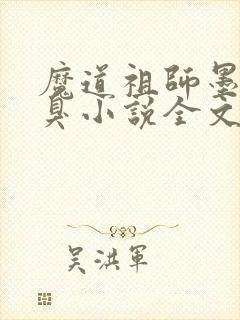 魔道祖師墨
臭小說全文
吴洪軍